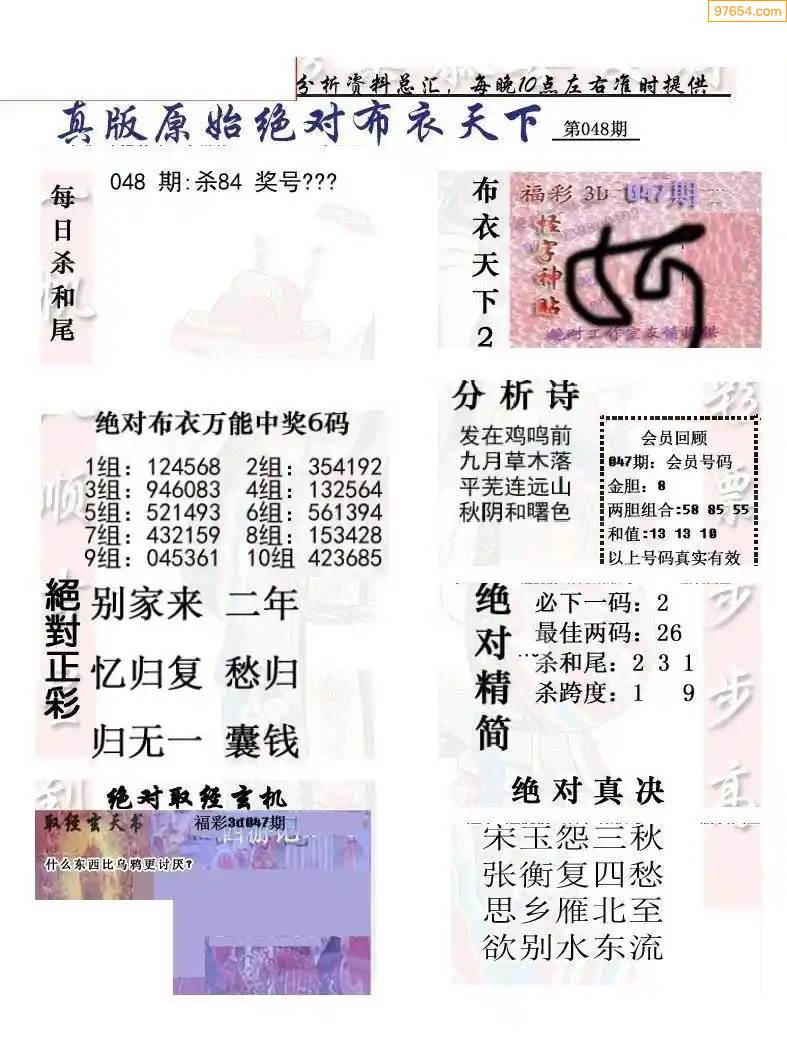 97654.com
分析资料总汇，每晚10点左右准时提供
真版原始绝对布衣天下 第048期
每日杀和尾
048 期:杀84 奖号???
布衣天下2
福彩 3D 047期
怪字神贴
绝对工作室友情提供
绝对布衣万能中奖6码
1组: 124568 2组: 354192
3组: 946083 4组: 132564
5组: 521493 6组: 561394
7组: 432159 8组: 153428
9组: 045361 10组 423685
分析诗
发在鸡鸣前
九月草木落
平芜连远山
秋阴和曙色
会员回顾
047期: 会员号码
金胆: 8
两胆组合:58 85 55
和值:13 13 10
以上号码真实有效
絕對正彩
别家来 二年
忆归复 愁归
归无一 囊钱
绝对精简
必下一码: 2
最佳两码: 26
杀和尾: 2 3 1
杀跨度: 1 9
绝对取经玄机
取经玄天书
福彩3d047期
西游记
什么东西比乌鸦更讨厌?
绝对真决
宋玉怨三秋
张衡复四愁
思乡雁北至
欲别水东流